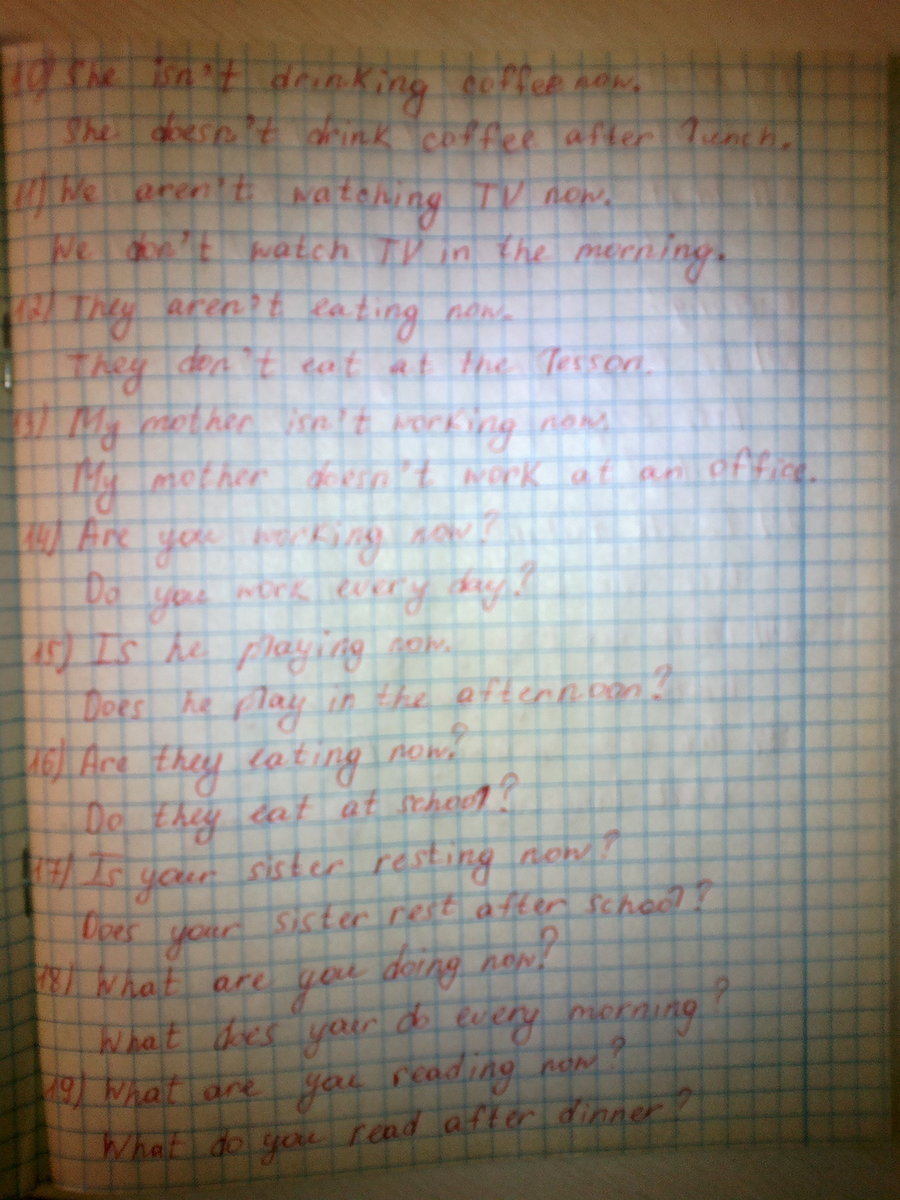 10) She isn't drinking coffee now.
She doesn't drink coffee after lunch.
11) We aren't watching TV now.
We don't watch TV in the morning.
12) They aren't eating now.
They don't eat at the lesson.
13) My mother isn't working now.
My mother doesn't work at an office.
14) Are you working now?
Do you work every day?
15) Is he playing now.
Does he play in the afternoon?
16) Are they eating now?
Do they eat at school?
17) Is your sister resting now?
Does your sister rest after school?
18) What are you doing now?
What does your do every morning?
19) What are you reading now?
What do you read after dinner?